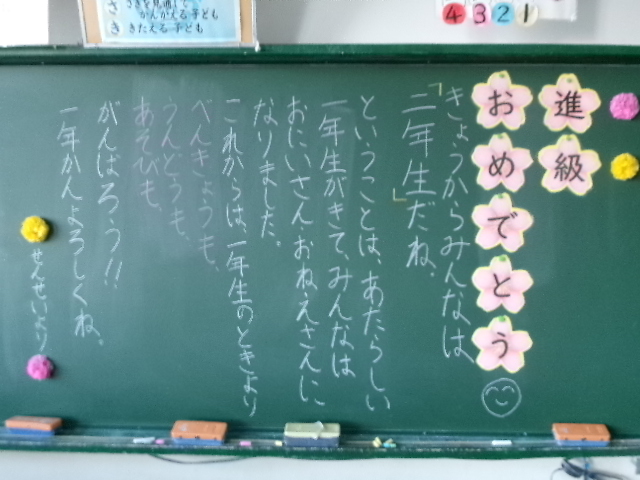 さきを見通して
かんがえる子ども
きたえる子ども
さ
き
4 3 2 1
進級
おめでとう
きょうからみんなは
「二年生」だね、
ということは、あたらしい
一年生がきて、みんなは
おにいさん・おねえさんに
なりました。
これからは、一年生のときより
べんきょうも、
うんどうも、
あそびも、
がんばろう!!
一年かんよろしくね。
せんせいより